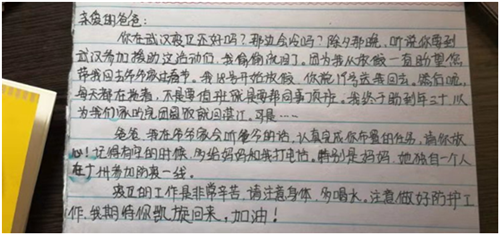 亲爱的爸爸:
你在武汉夜里还好吗?那边会冷吗?除夕那晚,听说你要到
武汉参加援助这活动们,我偷偷流泪了。因为我从放假一直盼望您
带我回去爷爷家过春节。我18号开始放假,你说19号送我回去。然而呢,
每天都在拖着,不是要值班就是要帮同事顶班。我终于盼到年三十,以
为我们家的团圆饭就回湛江,可是……
爸爸,我在爷爷家会听爷爷的话,认真完成你布置的任务,请你放
心!记得有空的时候,多给妈妈和我打电话。特别是妈妈,她独自一个人
在广州参加防疫一线。
夜里的工作是非常辛苦,请注意身体,多喝水。注意做好防护工
作,我期待你凯旋回来,加油!